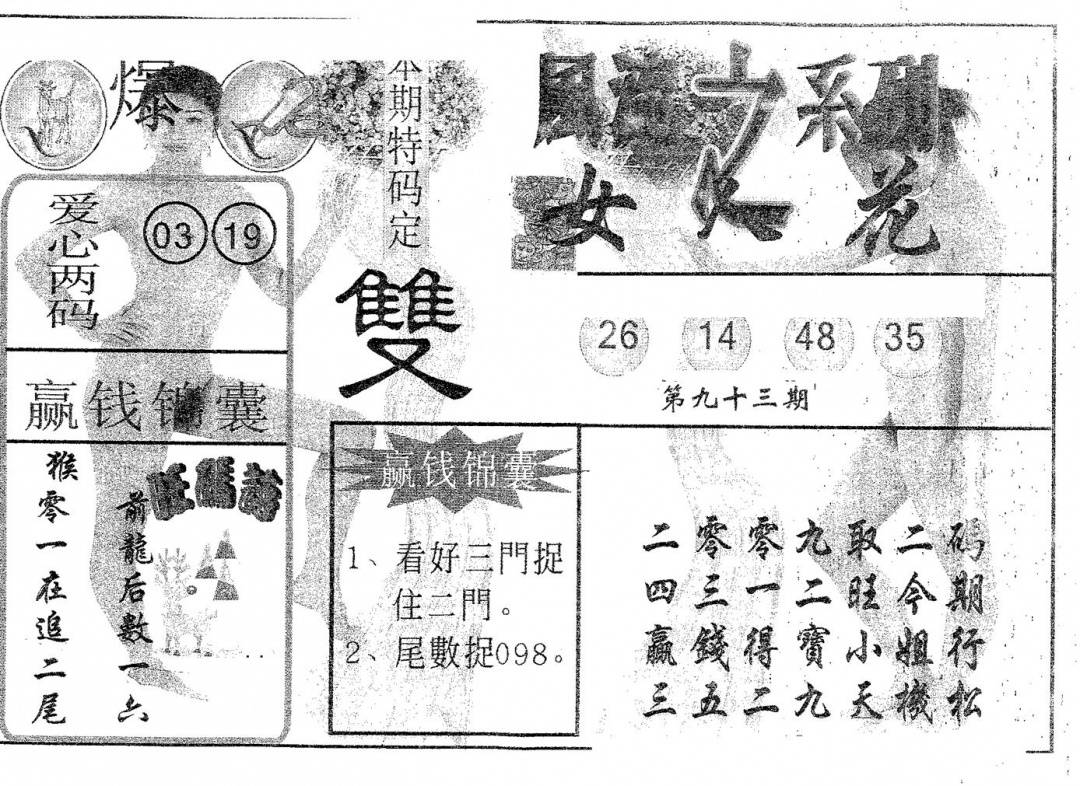 爆
本期特码定
雙
系列
女
花
爱心两码
03 19
26 14 48 35
第九十三期
赢钱锦囊
前龍后数一六
猴零一在追二尾
赢钱锦囊
1、看好三門捉
住二門。
2、尾數捉098。
二零零九取二码
四三一二旺今期
贏錢得寶小姐行
三五二九天機松